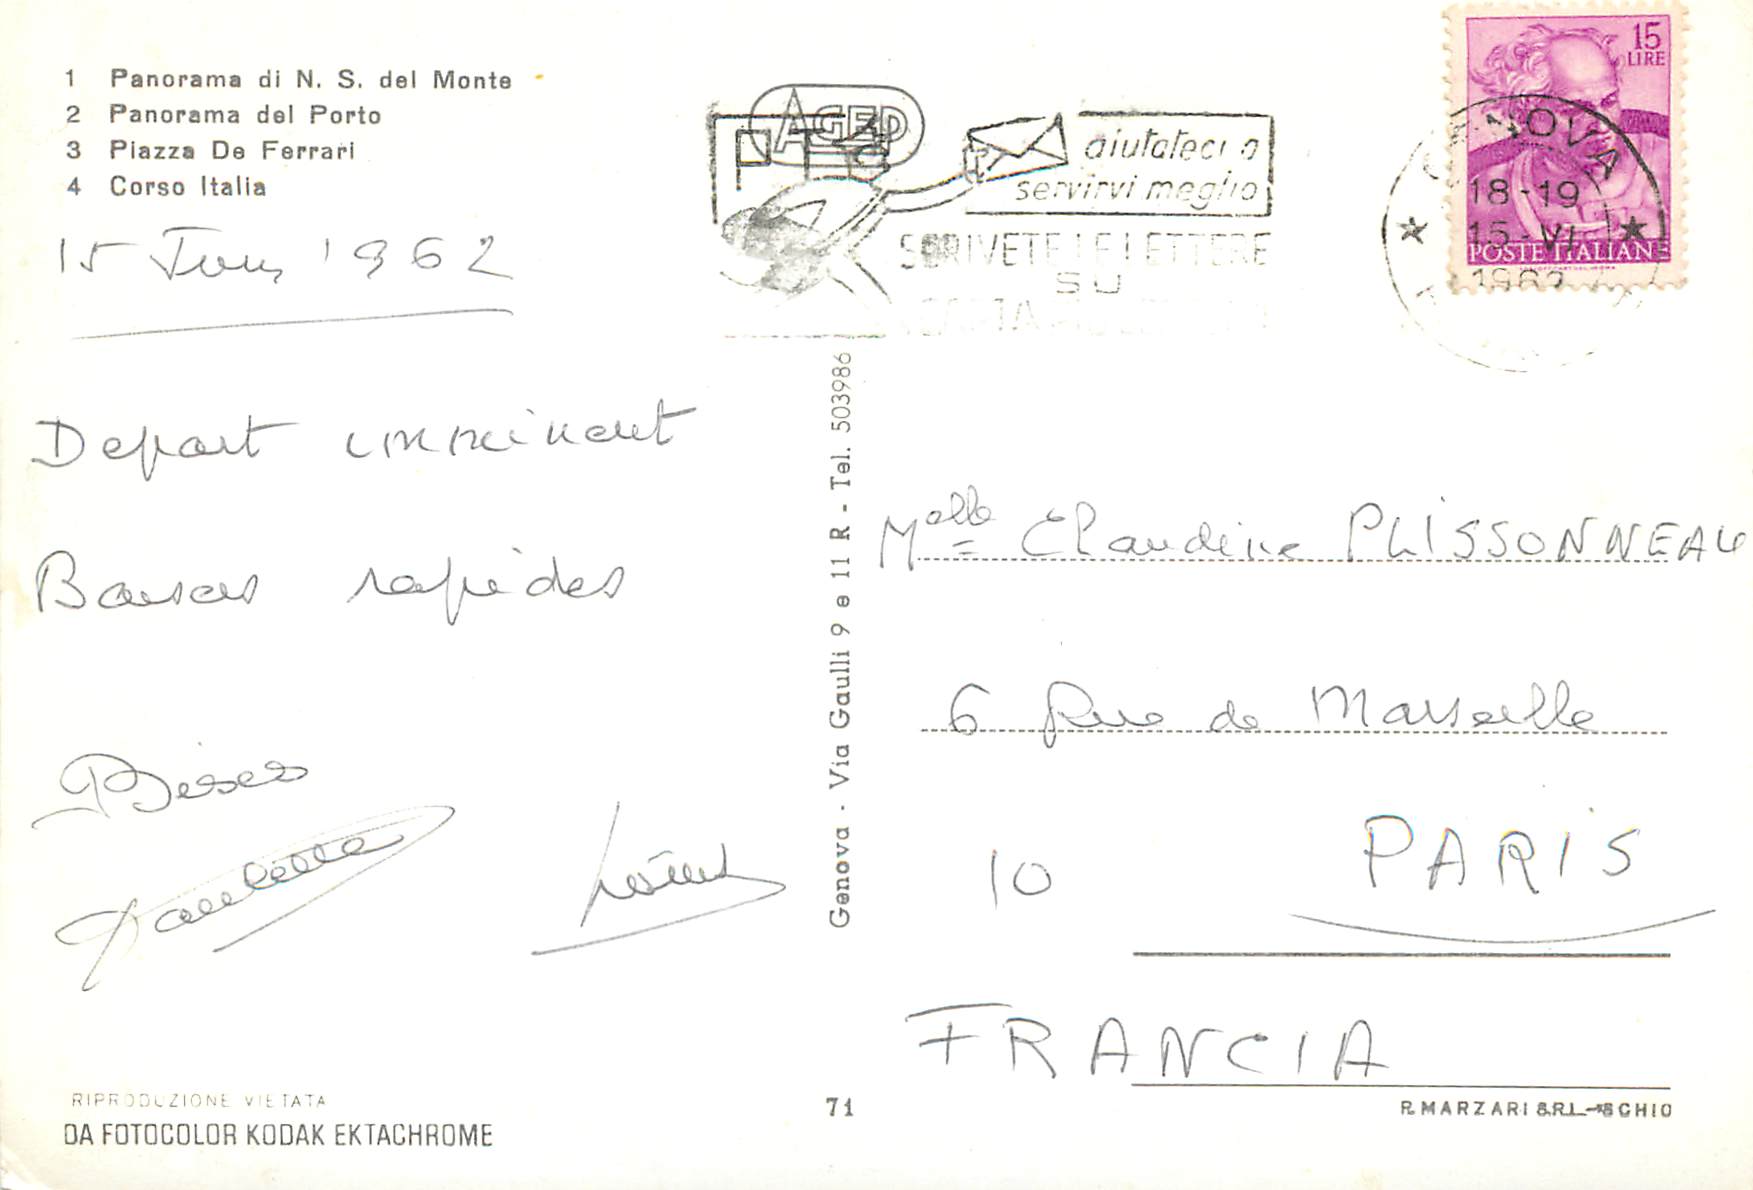 1 Panorama di N. S. del Monte
2 Panorama del Porto
3 Piazza De Ferrari
4 Corso Italia
15 Juin 1962
Depart imminent
Baisers rapides
Bises
Paulette
AGEP
aiutateci a
servirvi meglio
SCRIVETE LE LETTERE
SU
CARTA
15
LIRE
POSTE ITALIANE
GENOVA
18-19
15-VI
1962
Genova - Via Gaulli 9 e 11 R - Tel. 503986
Melle Claudine PLISSONNEAU
6 Rue de Marseille
10 PARIS
FRANCIA
RIPRODUZIONE VIETATA
DA FOTOCOLOR KODAK EKTACHROME
71
R. MARZARI S.R.L. - SCHIO